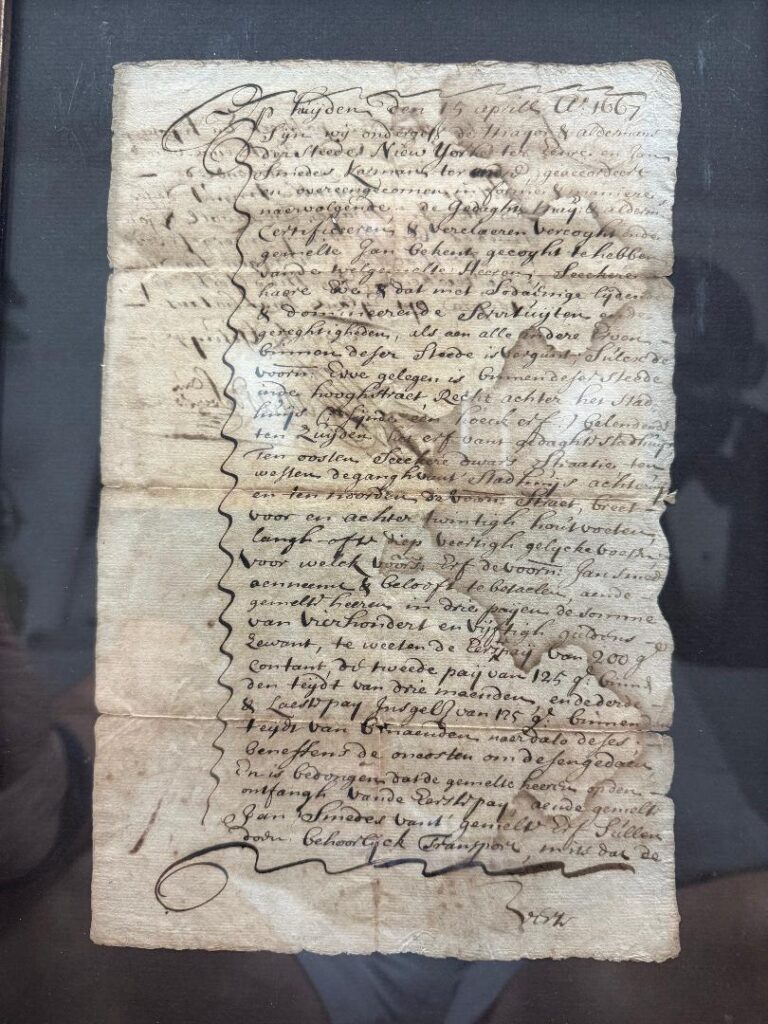 Op huijden den 15 aprill Ao. 1667
Sijn wij ondergets. de Mayor & aldermans
der Steedes Niew Yorke ter eenre en Jan
Smedes Karman ter andr. geaccordeert
en overeengecomen in forme & maniere
naervolgende de Gedaghte May. & alderms.
Certificeeren & verclaeren vercoght ende
gemelte Jan bekent gecoght te hebben
vande welgemelte Heeren Seeckere
haere Erve, & dat met Sodaenige lijdende
& domineerende Servtuyten ende
gereghtigheden, als aen alle andere Erven
binnen deser Steede is vergunt, Sullende
voorn. Erve gelegen is binnen deser Steede
inde hooghstraet, Recht achter het Stad-
huijs (Sijnde een hoeck erf) belendende
ten Zuijden het erf vant gedaghte Stadhuijs
Ten oosten Seeckere dwars Straatie, ten
westen de gangh vant Stadhuijs achter
en ten noorden de voorn. Straet, breet
voor en achter twintigh hout voeten
langh ofte diep veertigh gelycke voeten
voor welck voors. Erf de voorn. Jan Smed
aenneemt & belooft te betaelen, aende
gemelte heeren in drie payen de somme
van vierhondert en vijftigh guldens
Zewant, te weeten de Eerste pay van 200 g.
contant, de tweede paij van 125 g. binn
den tijdt van drie maenden, ende derde
& Laeste pay Insgel. van 125 g. binnen
tijdt van 6 maenden naer dato deses,
beneffens de oncosten om desen gedaen,
En is bedongen dat de gemelte heeren op den
ontfangh vande Eerste pay aende gemelt
Jan Smedes vant gemelte Erf Sullen
doen behoorlyck Transport, mits dat de